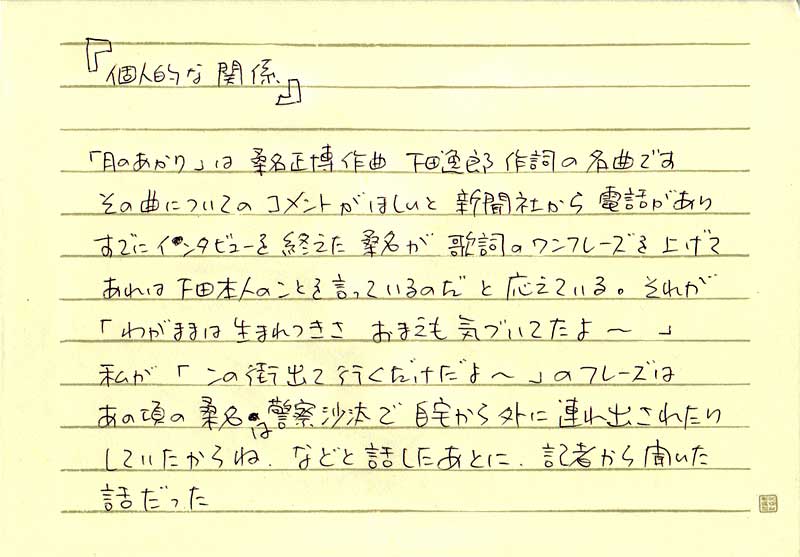 『個人的な関係』
「月のあかり」は 桑名正博作曲 下田逸郎 作詞の名曲です
その曲についてのコメントがほしいと 新聞社から 電話があり
すでにインタビューを終えた桑名が 歌詞のワンフレーズを上げて
あれは下田本人のことを言っているのだ と応えている。それが
「わがままは生まれつきさ おまえも気づいてたよ〜 」
私が「この街出て行くだけだよ〜」のフレーズは
あの頃の桑名は警察沙汰で 自宅から外に連れ出されたり
していたからね. などと話したあとに. 記者から聞いた
話だった